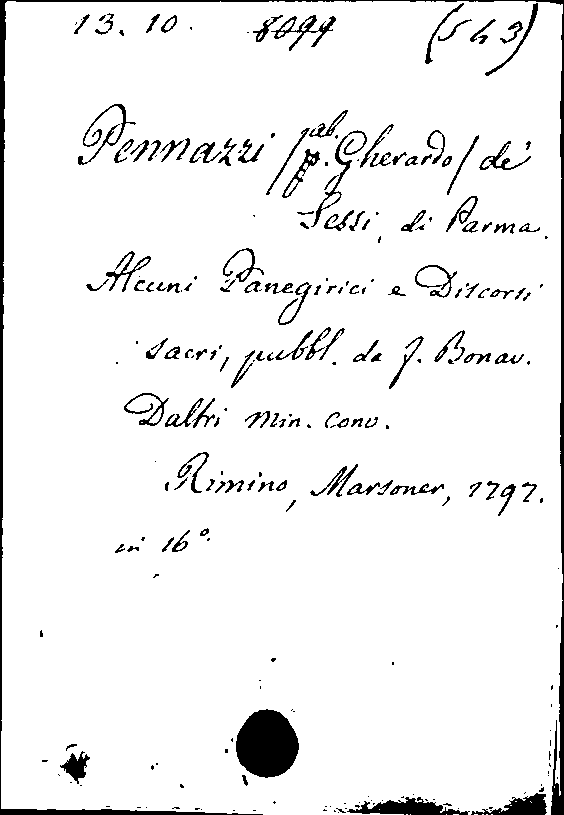 13. 10. 8099 (5 h 3)
Pennazzi / ab. Gherardo / de'
Sessi, di Parma.
Alcuni Panegirici e Discorsi
sacri, pubbl. da f. Bonav.
Daltri Min. Conv.
Rimino, Marsoner, 1797.
in 16°.